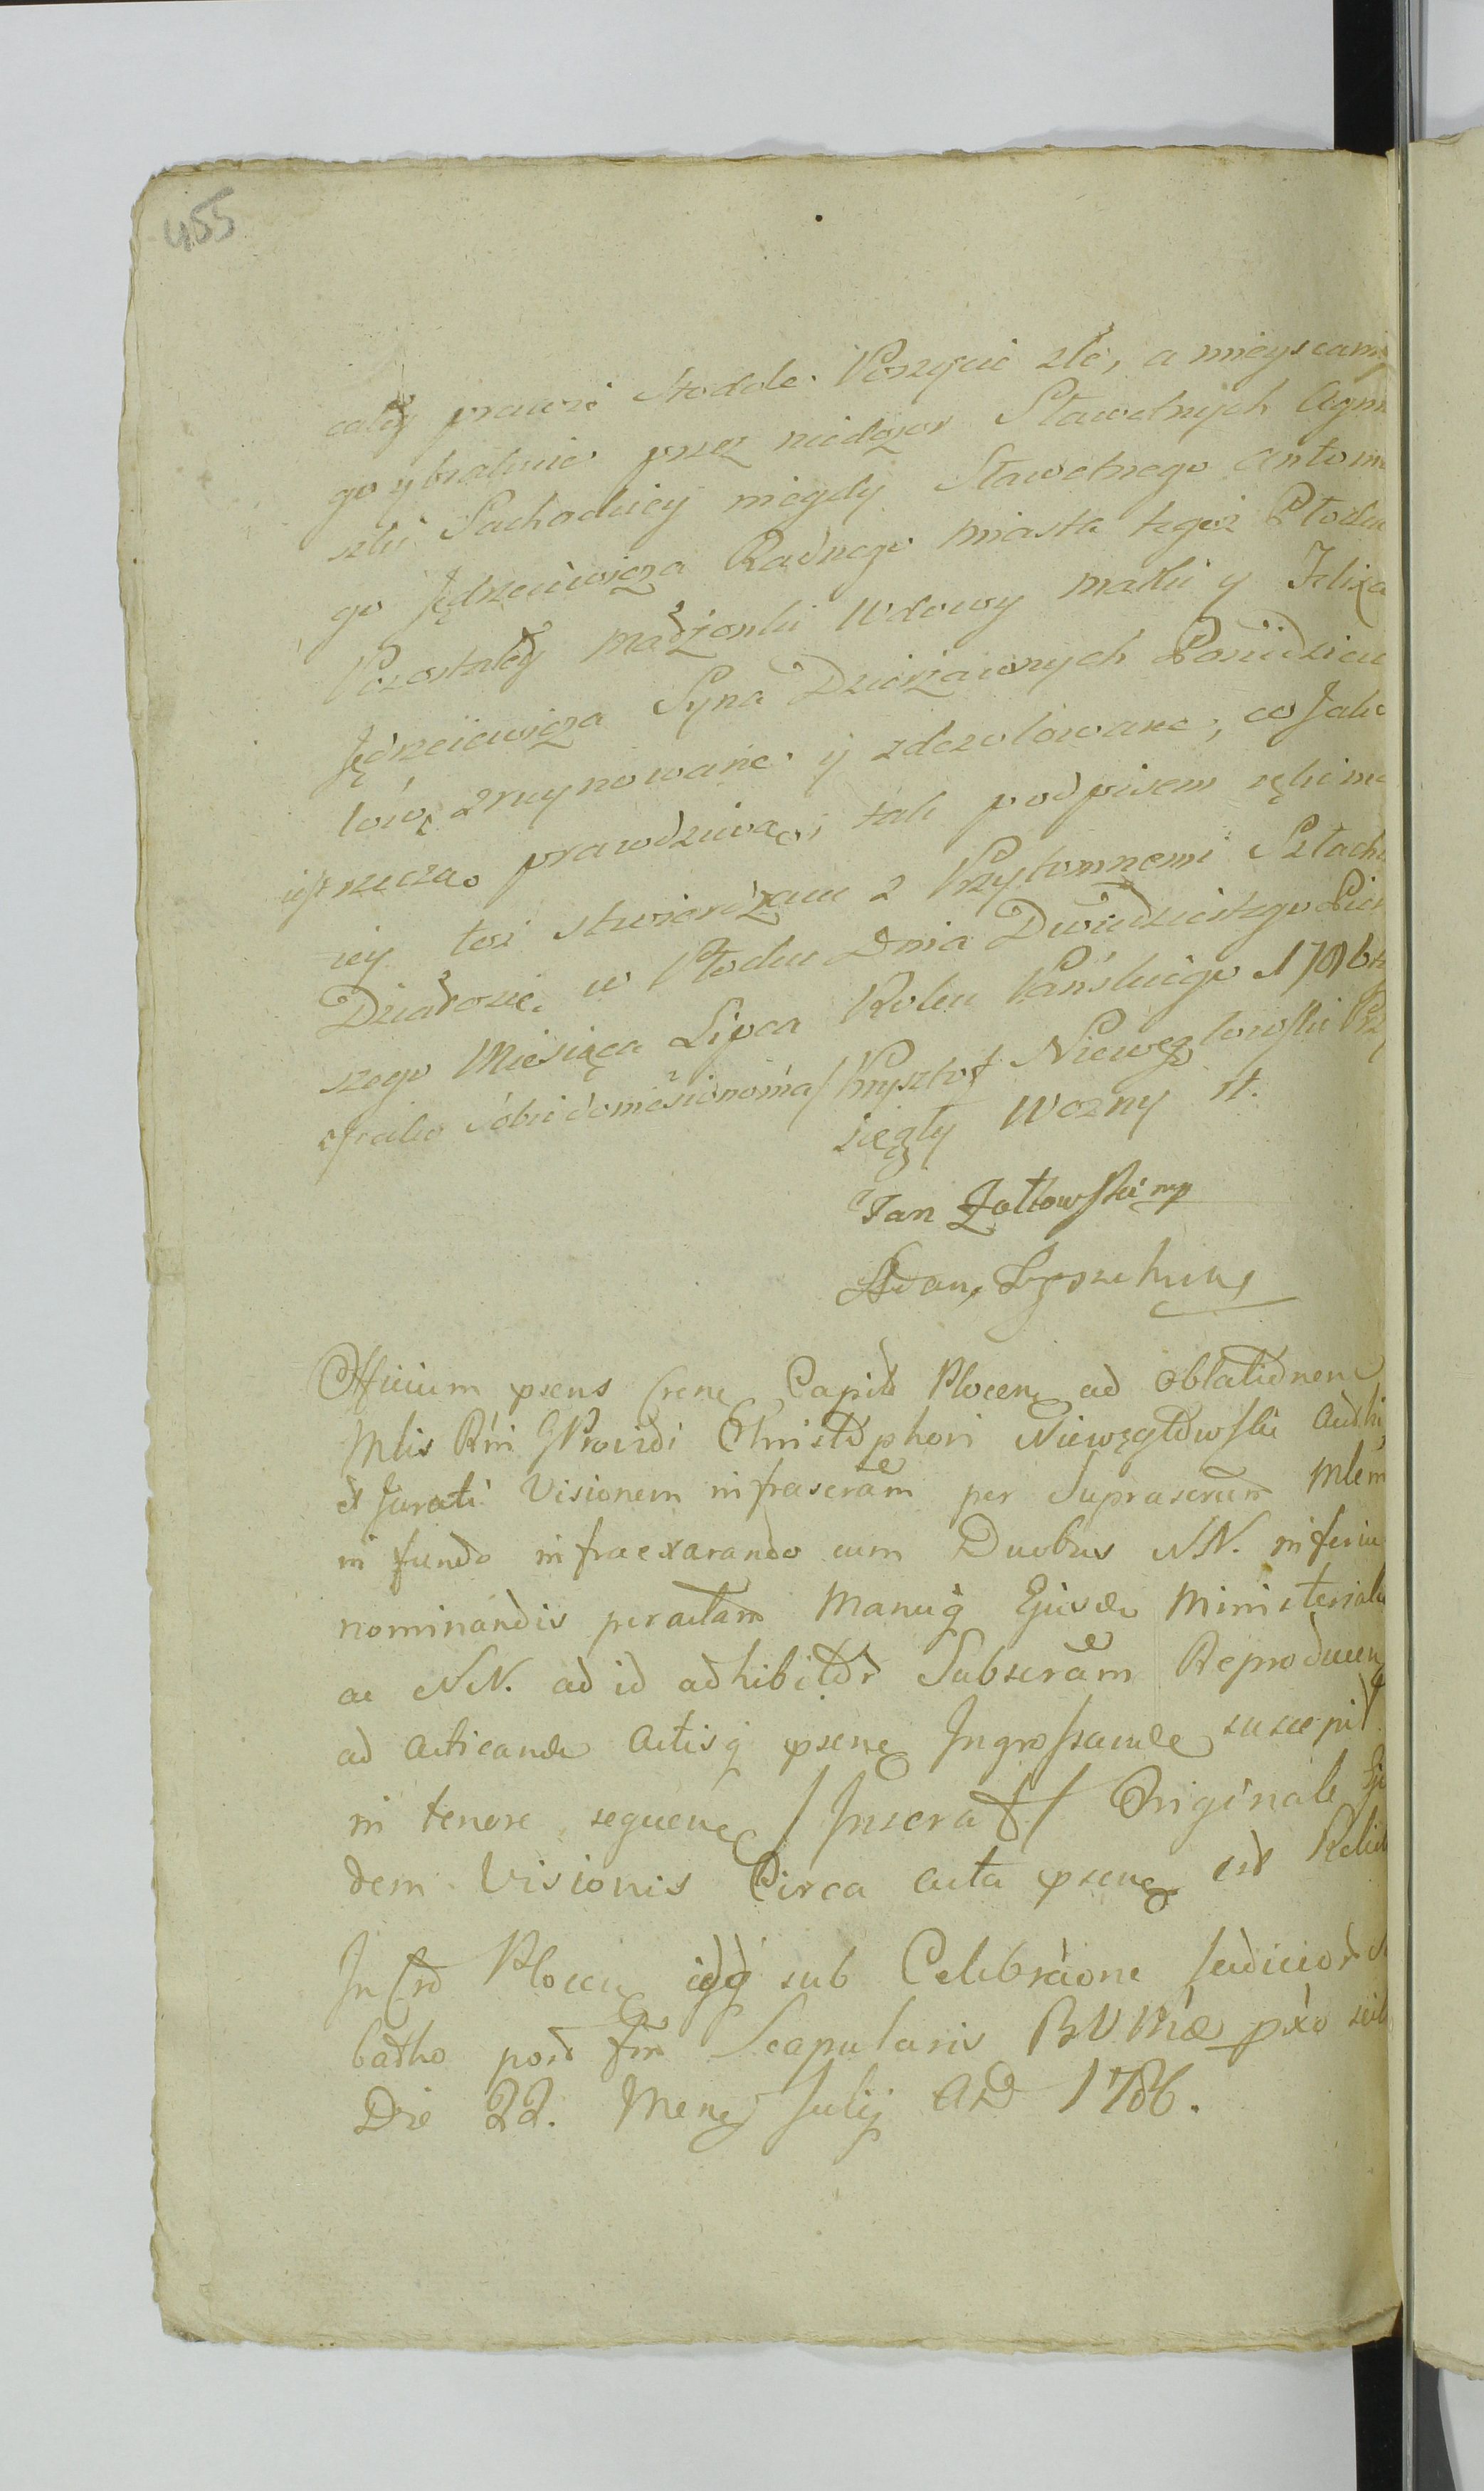 455
całey prawie stodole. Poszycie złe, a mieyscami
go y braknie przez niedozor Sławetnych Agni
szki Suchodlicy niegdy Sławetnego Antonie
go Jędrzeiewicza Radnego miasta tegoż Płocka
Pozostałey małżonki Wdowy matki y Felixa
Jędrzeiewicza Syna Dzierżawnych Possiedzicie
low, zruynowane y zdezolowane, co Jako
iest rzeczą prawdziwą, tak podpisem ręki mo
iey toż stwierdzam z Przytomnemi Szlachtą
Działosie w Płocku Dnia Dwudziestego Pier
szego Miesiąca Lipca Roku Pańskiego 1786to
Krysztof Niewęgłowski Przy
sięgły Wozny st.
Jan Zółtowski mp
Adam
Officium psens Crense Capitle Plocense ad Oblationem
Mlis Rni Providi Christophori Niewęgłowski Authi
et Jurati Visionem infrascram per Suprascrum Mlem
in fundo infraexarando cum Duobus NN. inferiu
nominandis peractam Manuq Ejusde Ministeriale
ac NN. ad id adhibitor Subscram Reproducen
ad acticande Actisq psene Ingrossande suscepit
in tenore sequene / Inserat / Originale Eju
dem Visionis Circa acta psene est Relict
In Cro Plocen idq sub Celebraone Judicior
batho post fm Scapularis BVMæ pxo
Die 22. Mens Julij AD 1786.